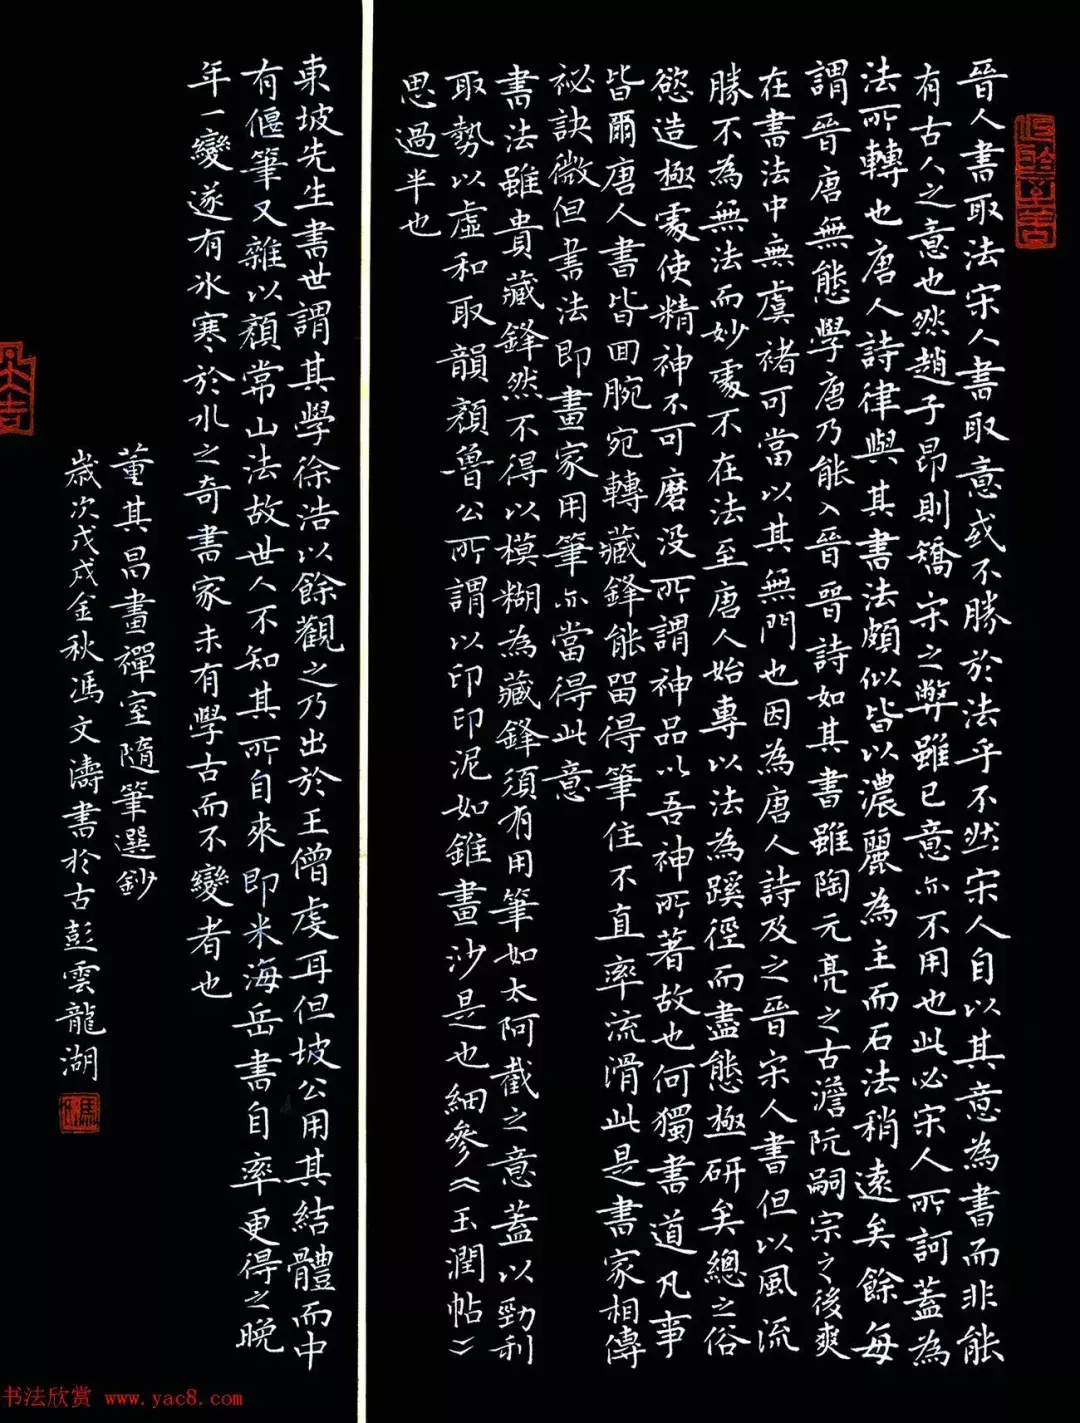 晉人書取法宋人書取意或不勝於法乎不然宋人自以其意為書而非能
有古人之意也然趙子昂則矯宋之弊雖已意亦不用也此必宋人所訶蓋為
法所轉也唐人詩律與其書法頗似皆以濃麗為主而石法稍遠矣餘每
謂晉唐無態學唐乃能入晉晉詩如其書雖陶元亮之古澹阮嗣宗之後爽
在書法中無虞褚可當以其無門也因為唐人詩及之晉宋人書但以風流
勝不為無法而妙處不在法至唐人始專以法為蹊徑而盡態極研矣總之俗
慾造極處使精神不可磨没所謂神品以吾神所著故也何獨書道凡事
皆爾唐人書皆回腕宛轉藏鋒能留得筆住不直率流滑此是書家相傳
祕訣微但書法即畫家用筆亦當得此意
書法雖貴藏鋒然不得以模糊為藏鋒須有用筆如太阿截之意蓋以勁利
取勢以虛和取韻顏魯公所謂以印印泥如錐畫沙是也細參《玉潤帖》
思過半也
東坡先生書世謂其學徐浩以餘觀之乃出於王僧虔耳但坡公用其結體而中
有偃筆又雜以顏常山法故世人不知其所自來即米海岳書自率更得之晚
年一變遂有冰寒於水之奇書家未有學古而不變者也
董其昌畫禪室隨筆選鈔
歲次戊戌金秋馮文濤書於古彭雲龍湖
书法欣赏 www.yac8.com